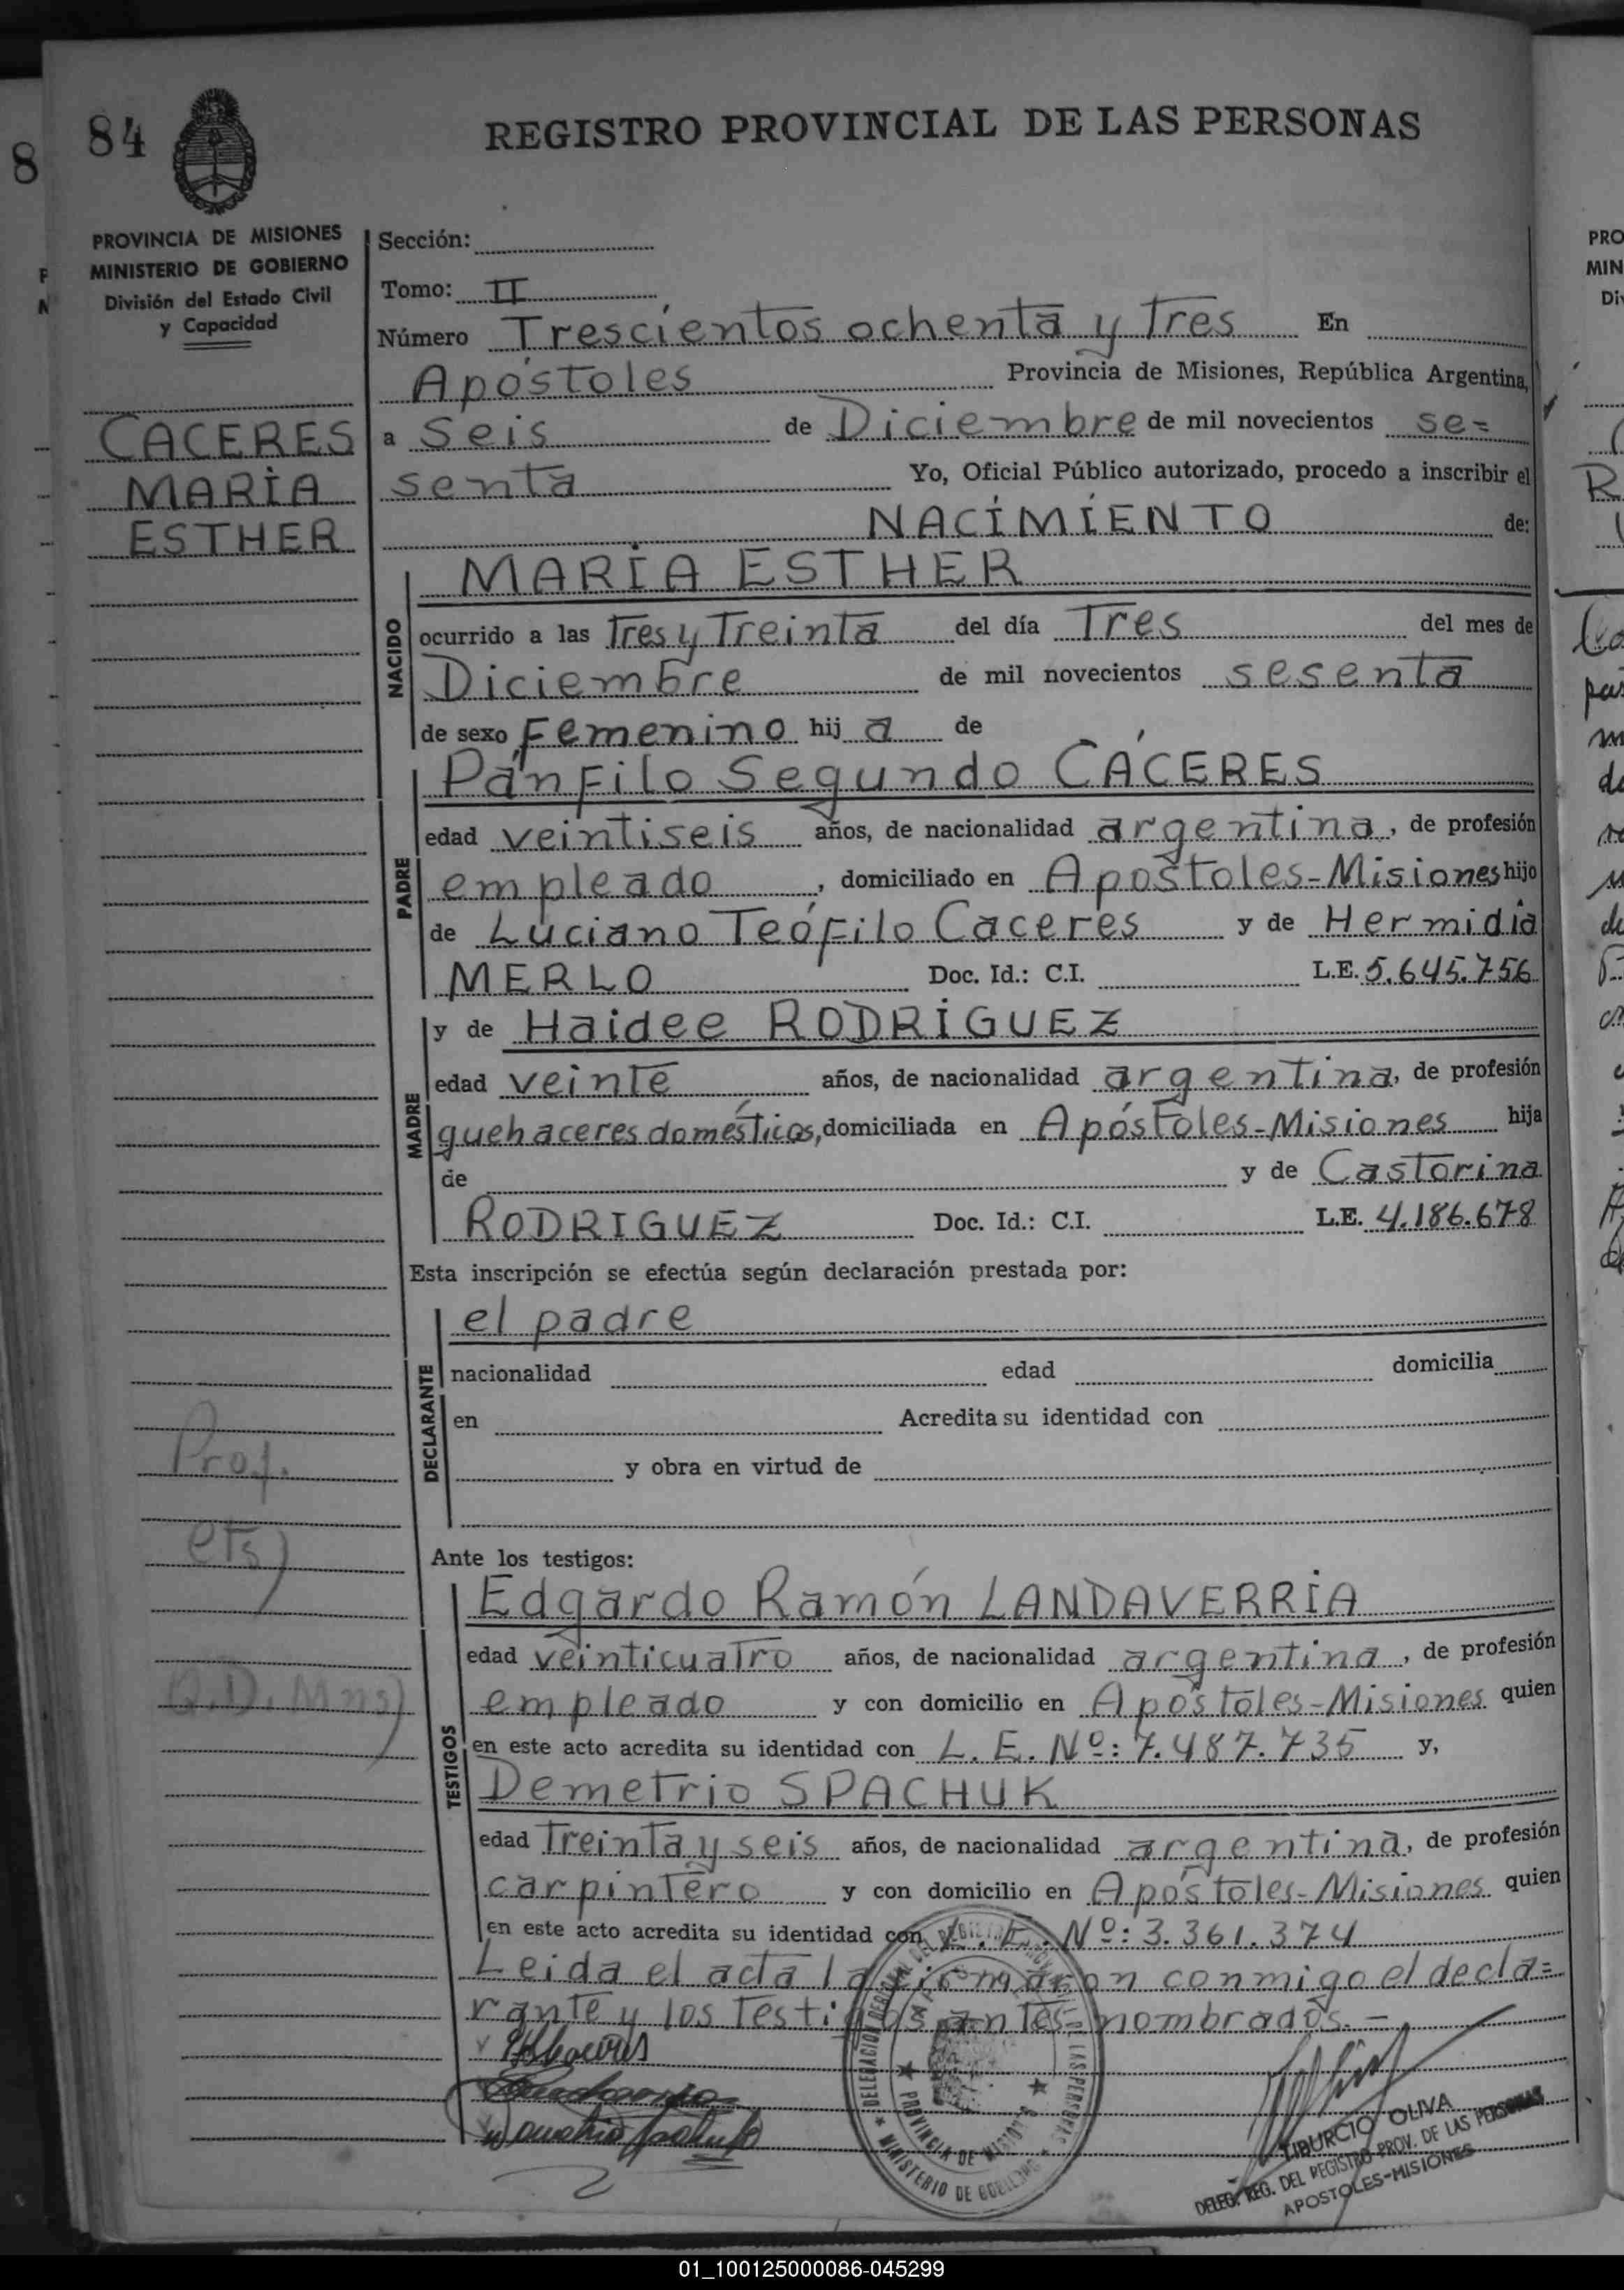 84
REGISTRO PROVINCIAL DE LAS PERSONAS
8
PROVINCIA DE MISIONES
MINISTERIO DE GOBIERNO
División del Estado Civil
y Capacidad
CACERES
MARÍA
ESTHER
Prof.
Sección:
Tomo: II
Número Trescientos ochenta y Tres En
Apóstoles Provincia de Misiones, República Argentina,
a Seis de Diciembre de mil novecientos se=
senta Yo, Oficial Público autorizado, procedo a inscribir el
NACIMIENTO de:
MARÍA ESTHER
NACIDO
ocurrido a las Tres y Treinta del día Tres del mes de
Diciembre de mil novecientos sesenta
de sexo Femenino hij a de
Pánfilo Segundo CÁCERES
PADRE
edad veintiseis años, de nacionalidad argentina, de profesión
empleado, domiciliado en Apostoles-Misiones hijo
de Luciano Teófilo Caceres y de Hermidia
MERLO Doc. Id.: C.I. L.E. 5.645.756
y de Haidee RODRÍGUEZ
MADRE
edad veinte años, de nacionalidad argentina, de profesión
quehaceres domésticos, domiciliada en Apóstoles-Misiones hija
de y de Castorina
RODRIGUEZ Doc. Id.: C.I. L.E. 4.186.678
Esta inscripción se efectúa según declaración prestada por:
el padre
DECLARANTE
nacionalidad edad domicilia
en Acredita su identidad con
y obra en virtud de
Ante los testigos:
Edgardo Ramón LANDAVERRÍA
TESTIGOS
edad veinticuatro años, de nacionalidad argentina, de profesión
empleado y con domicilio en Apóstoles-Misiones quien
en este acto acredita su identidad con L.E. Nº: 7.487.735 y,
Demetrio SPACHUK
edad Treinta y seis años, de nacionalidad argentina, de profesión
carpintero y con domicilio en Apóstoles-Misiones quien
en este acto acredita su identidad con L.E. Nº: 3.361.374
Leida el acta la firmaron conmigo el decla=
rante y los testigos antes nombrados.-
MINISTERIO DE GOBIERNO
PROVINCIA DE MISIONES
TIBURCIO OLIVA
DELEG. REG. DEL REGISTRO PROV. DE LAS PERSONAS
APOSTOLES-MISIONES
01_100125000086-045299